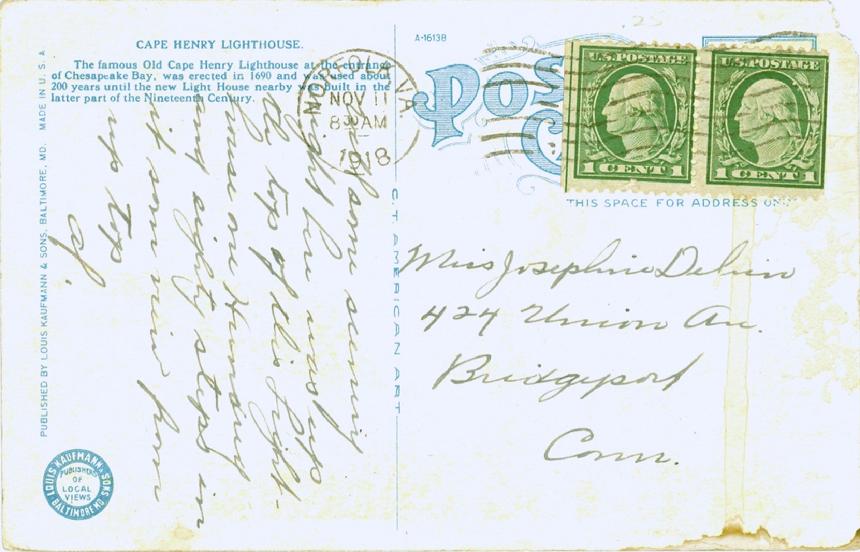 CAPE HENRY LIGHTHOUSE.
The famous Old Cape Henry Lighthouse at the entrance
of Chesapeake Bay, was erected in 1690 and was used about
200 years until the new Light House nearby was built in the
latter part of the Nineteenth Century.
A-16138
NORFOLK, VA.
NOV 11
8 30 AM
1918
POS
U.S. POSTAGE
1 CENT 1
U.S. POSTAGE
1 CENT 1
THIS SPACE FOR ADDRESS ONLY
some scenery
right here was up
the top of this Light-
house one Hundred
and eighty steps in
it some view from
up top
of.
Miss Josephine
424 Union Av.
Bridgeport
Conn.
C T AMERICAN ART
PUBLISHED BY LOUIS KAUFMANN & SONS, BALTIMORE, MD. MADE IN U. S. A.
LOUIS KAUFMANN & SONS
BALTIMORE MD.
PUBLISHERS
OF
LOCAL
VIEWS